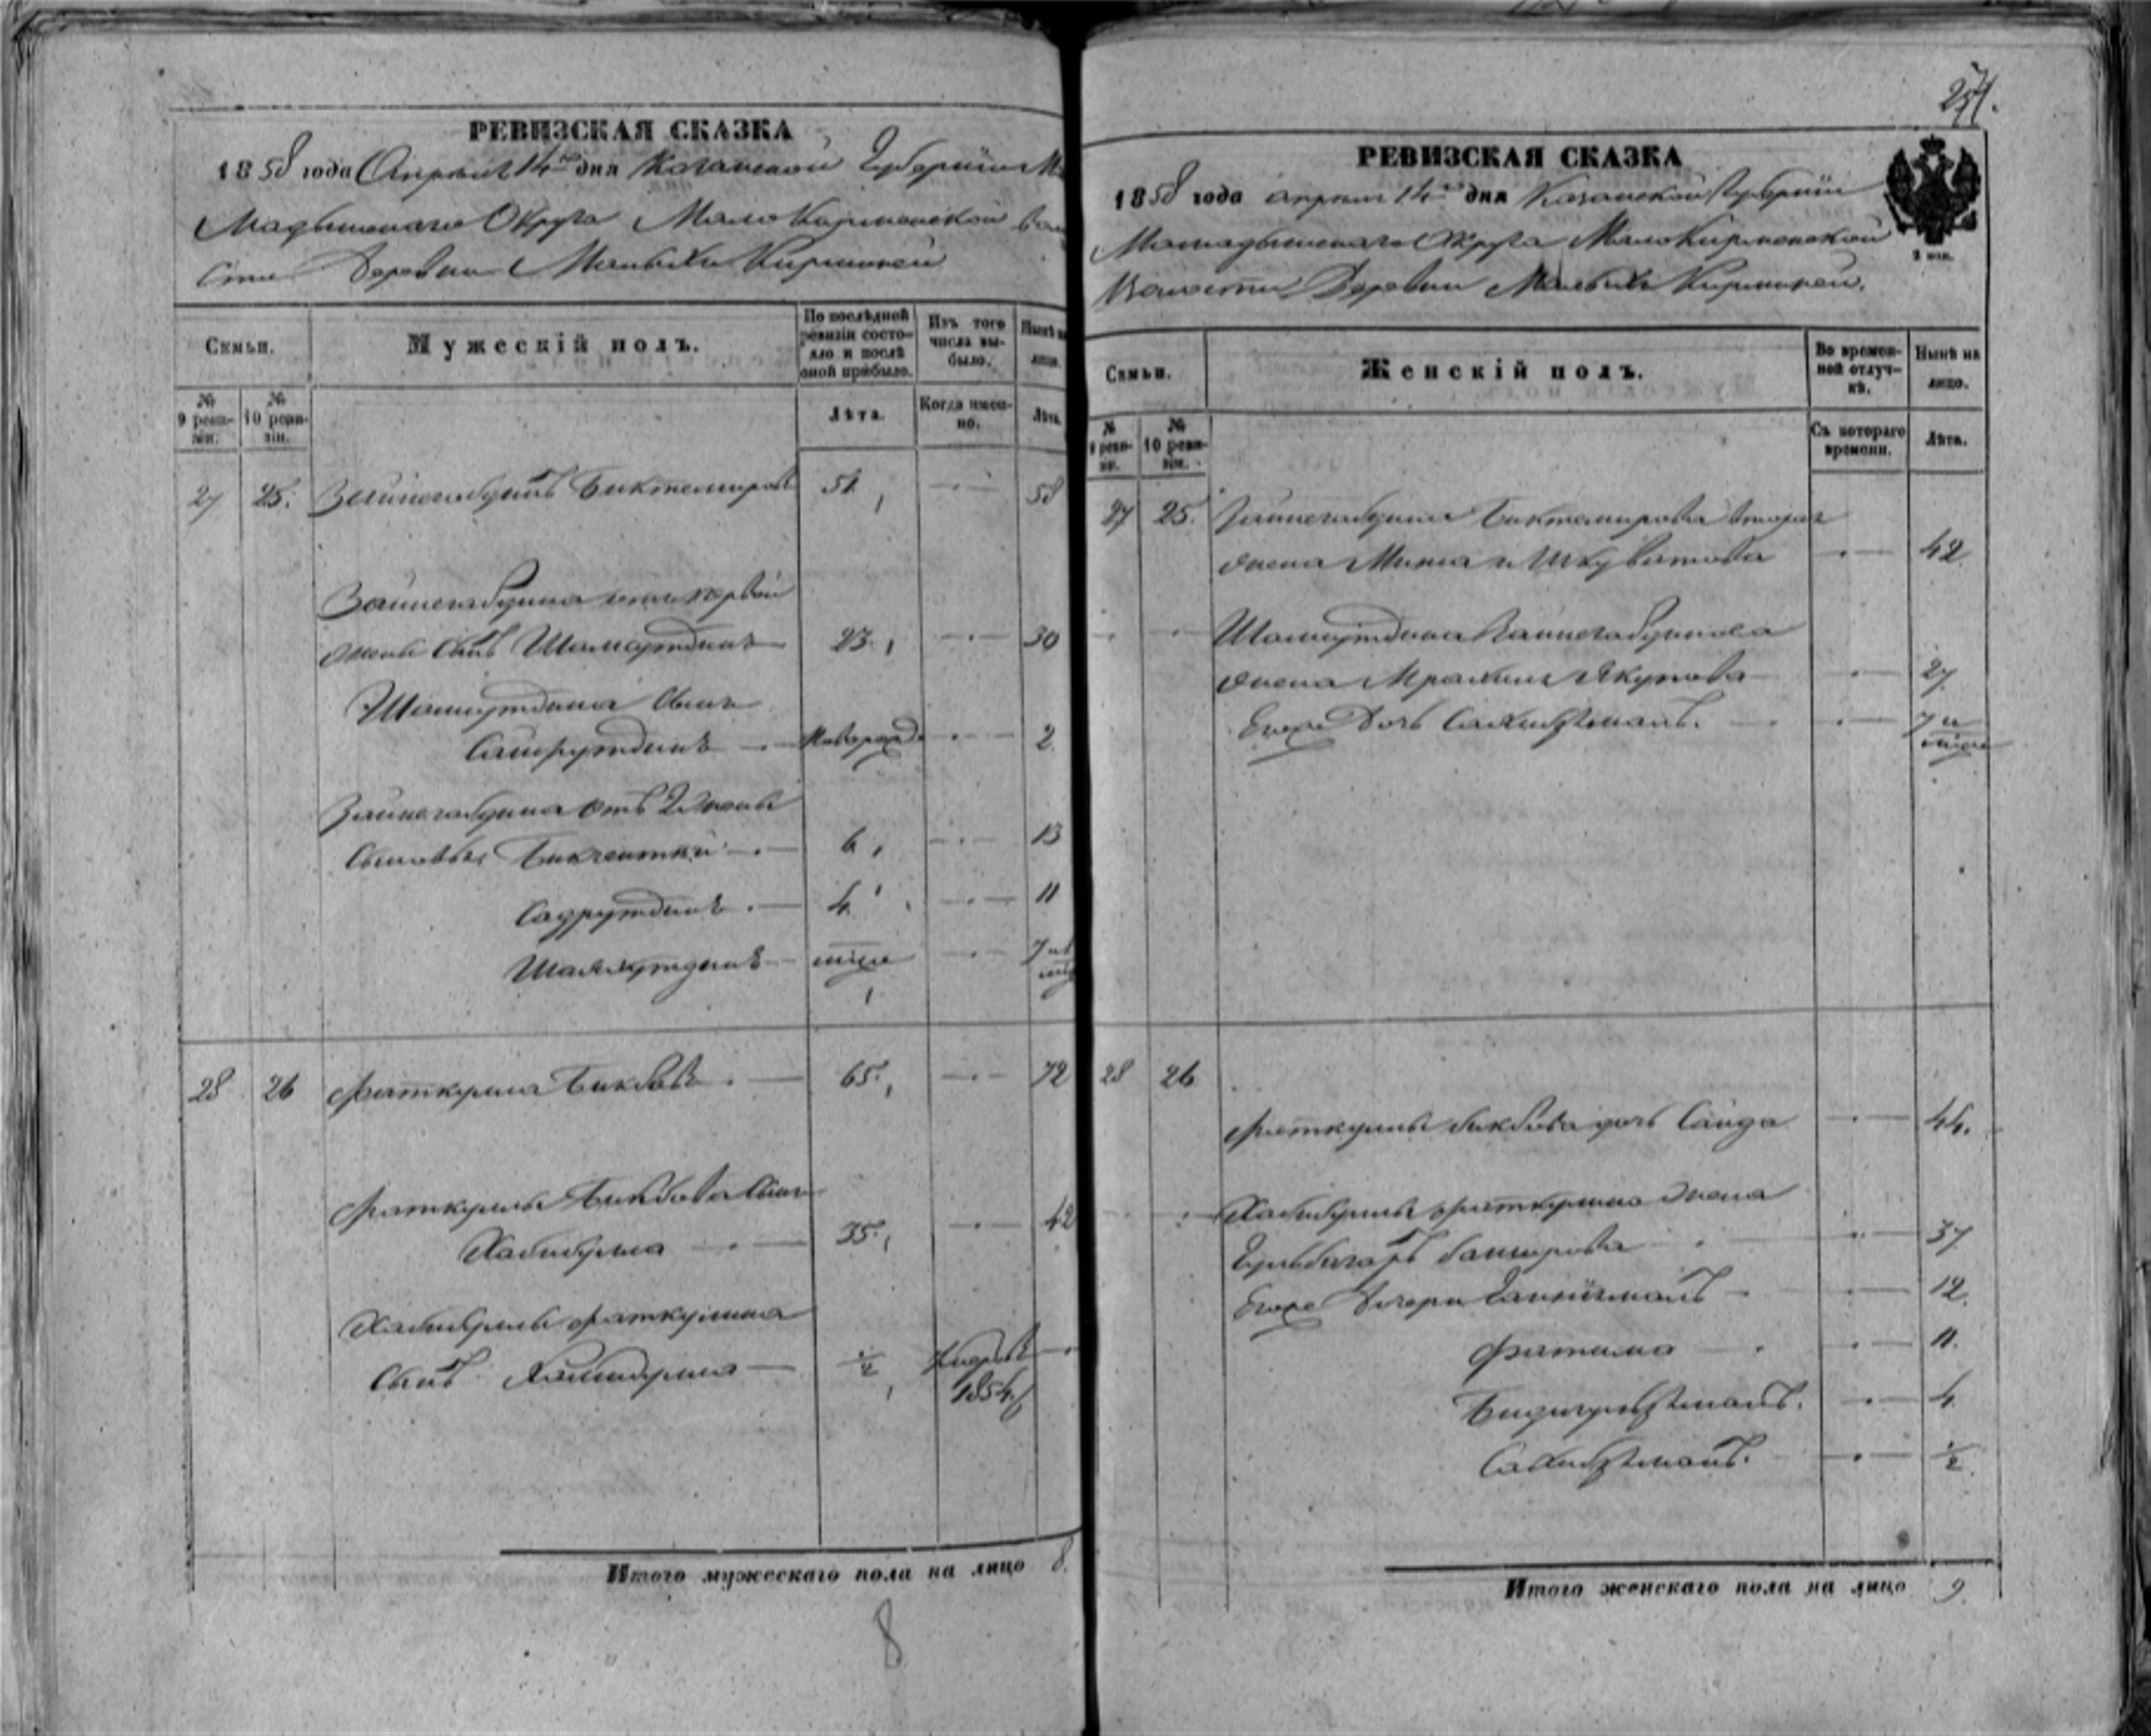 РЕВИЗСКАЯ СКАЗКА
1858 года Апреля 14 дня Казанской Губернии Ма
Мадышскаго Округа Мало Кирменской Воло
сти Деревни Малыхъ Кирменей
Семьи.
Мужескій полъ.
По послѣдней ревизіи состояло и послѣ оной прибыло.
Изъ того числа выбыло.
Нынѣ на лицо.
№ 9 ревизіи.
№ 10 ревизіи.
Лѣта.
Когда именно.
Лѣта.
27 25. Зайнегабдинъ Биктемировъ 51 58
Зайнегабдина первой
жены сынъ Шамсутдинъ 23 30
Шамсутдина сынъ
новорожд 2
Зайнегабдина отъ 2 жены
сыновья 6 13
Садрутдинъ 4 11
7 не
28 26 Фаткулла Бикбовъ 65 72
Фаткуллы Бикбова сынъ
Хабибулла 35 42
Хабибуллы Фаткуллина
сынъ 1/2 1854
Итого мужескаго пола на лицо 8.
8
254.
РЕВИЗСКАЯ СКАЗКА
1858 года апреля 14 дня Казанской Губернии
Мамадышскаго Округа Мало Кирменской
Волости Деревни Малыхъ Кирменей.
2 коп.
Семьи.
Женскій полъ.
Во временной отлучкѣ.
Нынѣ на лицо.
№ 9 ревизіи.
№ 10 ревизіи.
Съ котораго времени.
Лѣта.
27 25. Зайнегабдина Биктемирова вторая
жена 42
Шамсутдина Зайнегабдинова
жена Якупова 27
Его же дочь Сахибзямалъ. 7 не
28 26
Фаткуллы Бикбова дочь Саида 44.
Хабибуллы Фаткуллина жена
Баширова 37
Его же дочери 12.
Фатима 11.
4
Сахибзямалъ. 1/2
Итого женскаго пола на лицо 9.